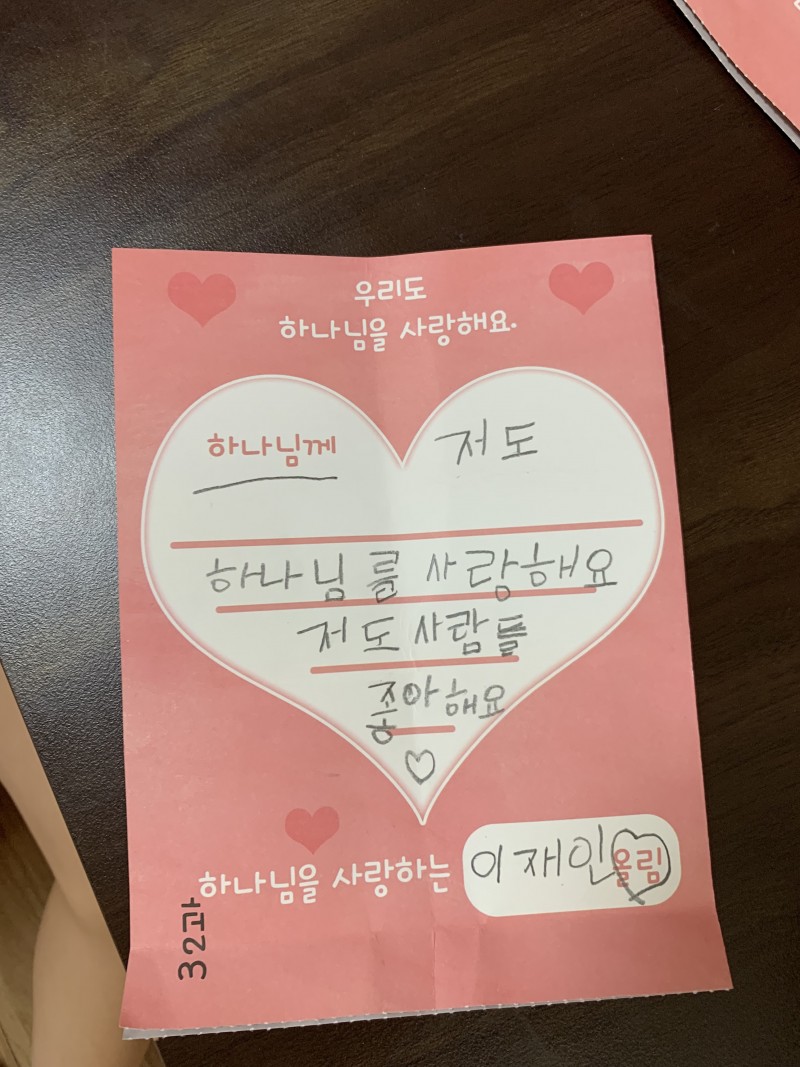 우리도
하나님을 사랑해요.
하나님께 저도
하나님를 사랑해요
저도 사람들
좋아해요
하나님을 사랑하는 이재인 올림
32과